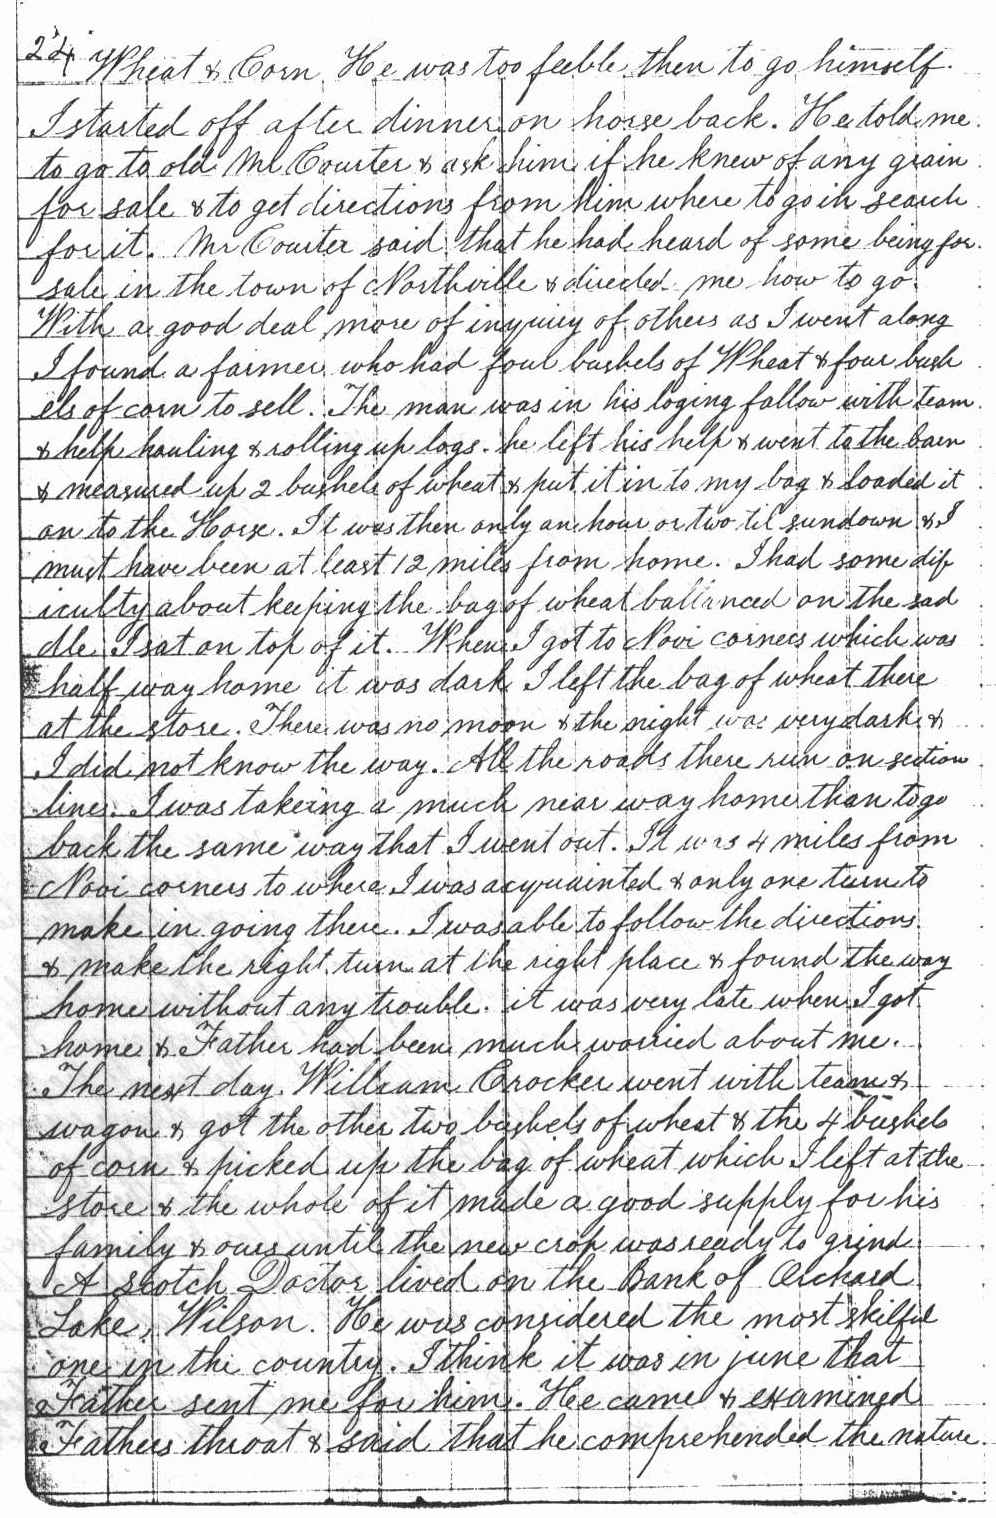 24 Wheat & Corn. He was too feeble then to go himself.
I started off after dinner on horse back. He told me
to go to old Mr Courter & ask him if he knew of any grain
for sale & to get directions from him where to go in search
for it. Mr Courter said that he had heard of some being for
sale in the town of Northville & directed me how to go.
With a good deal more of inquiry of others as I went along
I found a farmer who had four bushels of Wheat & four bush
els of corn to sell. The man was in his loging fallow with team
& help hauling & rolling up logs. he left his help & went to the barn
& measured up 2 bushels of wheat & put it in to my bag & loaded it
on to the Horse. It was then only an hour or two til sundown & I
must have been at least 12 miles from home. I had some dif
iculty about keeping the bag of wheat ballanced on the sad
dle I sat on top of it. When I got to Novi corners which was
half way home it was dark I left the bag of wheat there
at the store. There was no moon & the night was very dark &
I did not know the way. All the roads there run on section
lines. I was takeing a much near way home than to go
back the same way that I went out. It was 4 miles from
Novi corners to where I was acquainted & only one turn to
make in going there. I was able to follow the directions
& make the right turn at the right place & found the way
home without any trouble. it was very late when I got
home & Father had been much worried about me.
The next day William Crocker went with team &
wagon & got the other two bushels of wheat & the 4 bushels
of corn & picked up the bag of wheat which I left at the
store & the whole of it made a good supply for his
family & ours until the new crop was ready to grind
A scotch Doctor lived on the Bank of Orchard
Lake, Wilson. He was considered the most skilful
one in the country. I think it was in june that
Father sent me for him. He came & examined
Fathers throat & said that he comprehended the nature